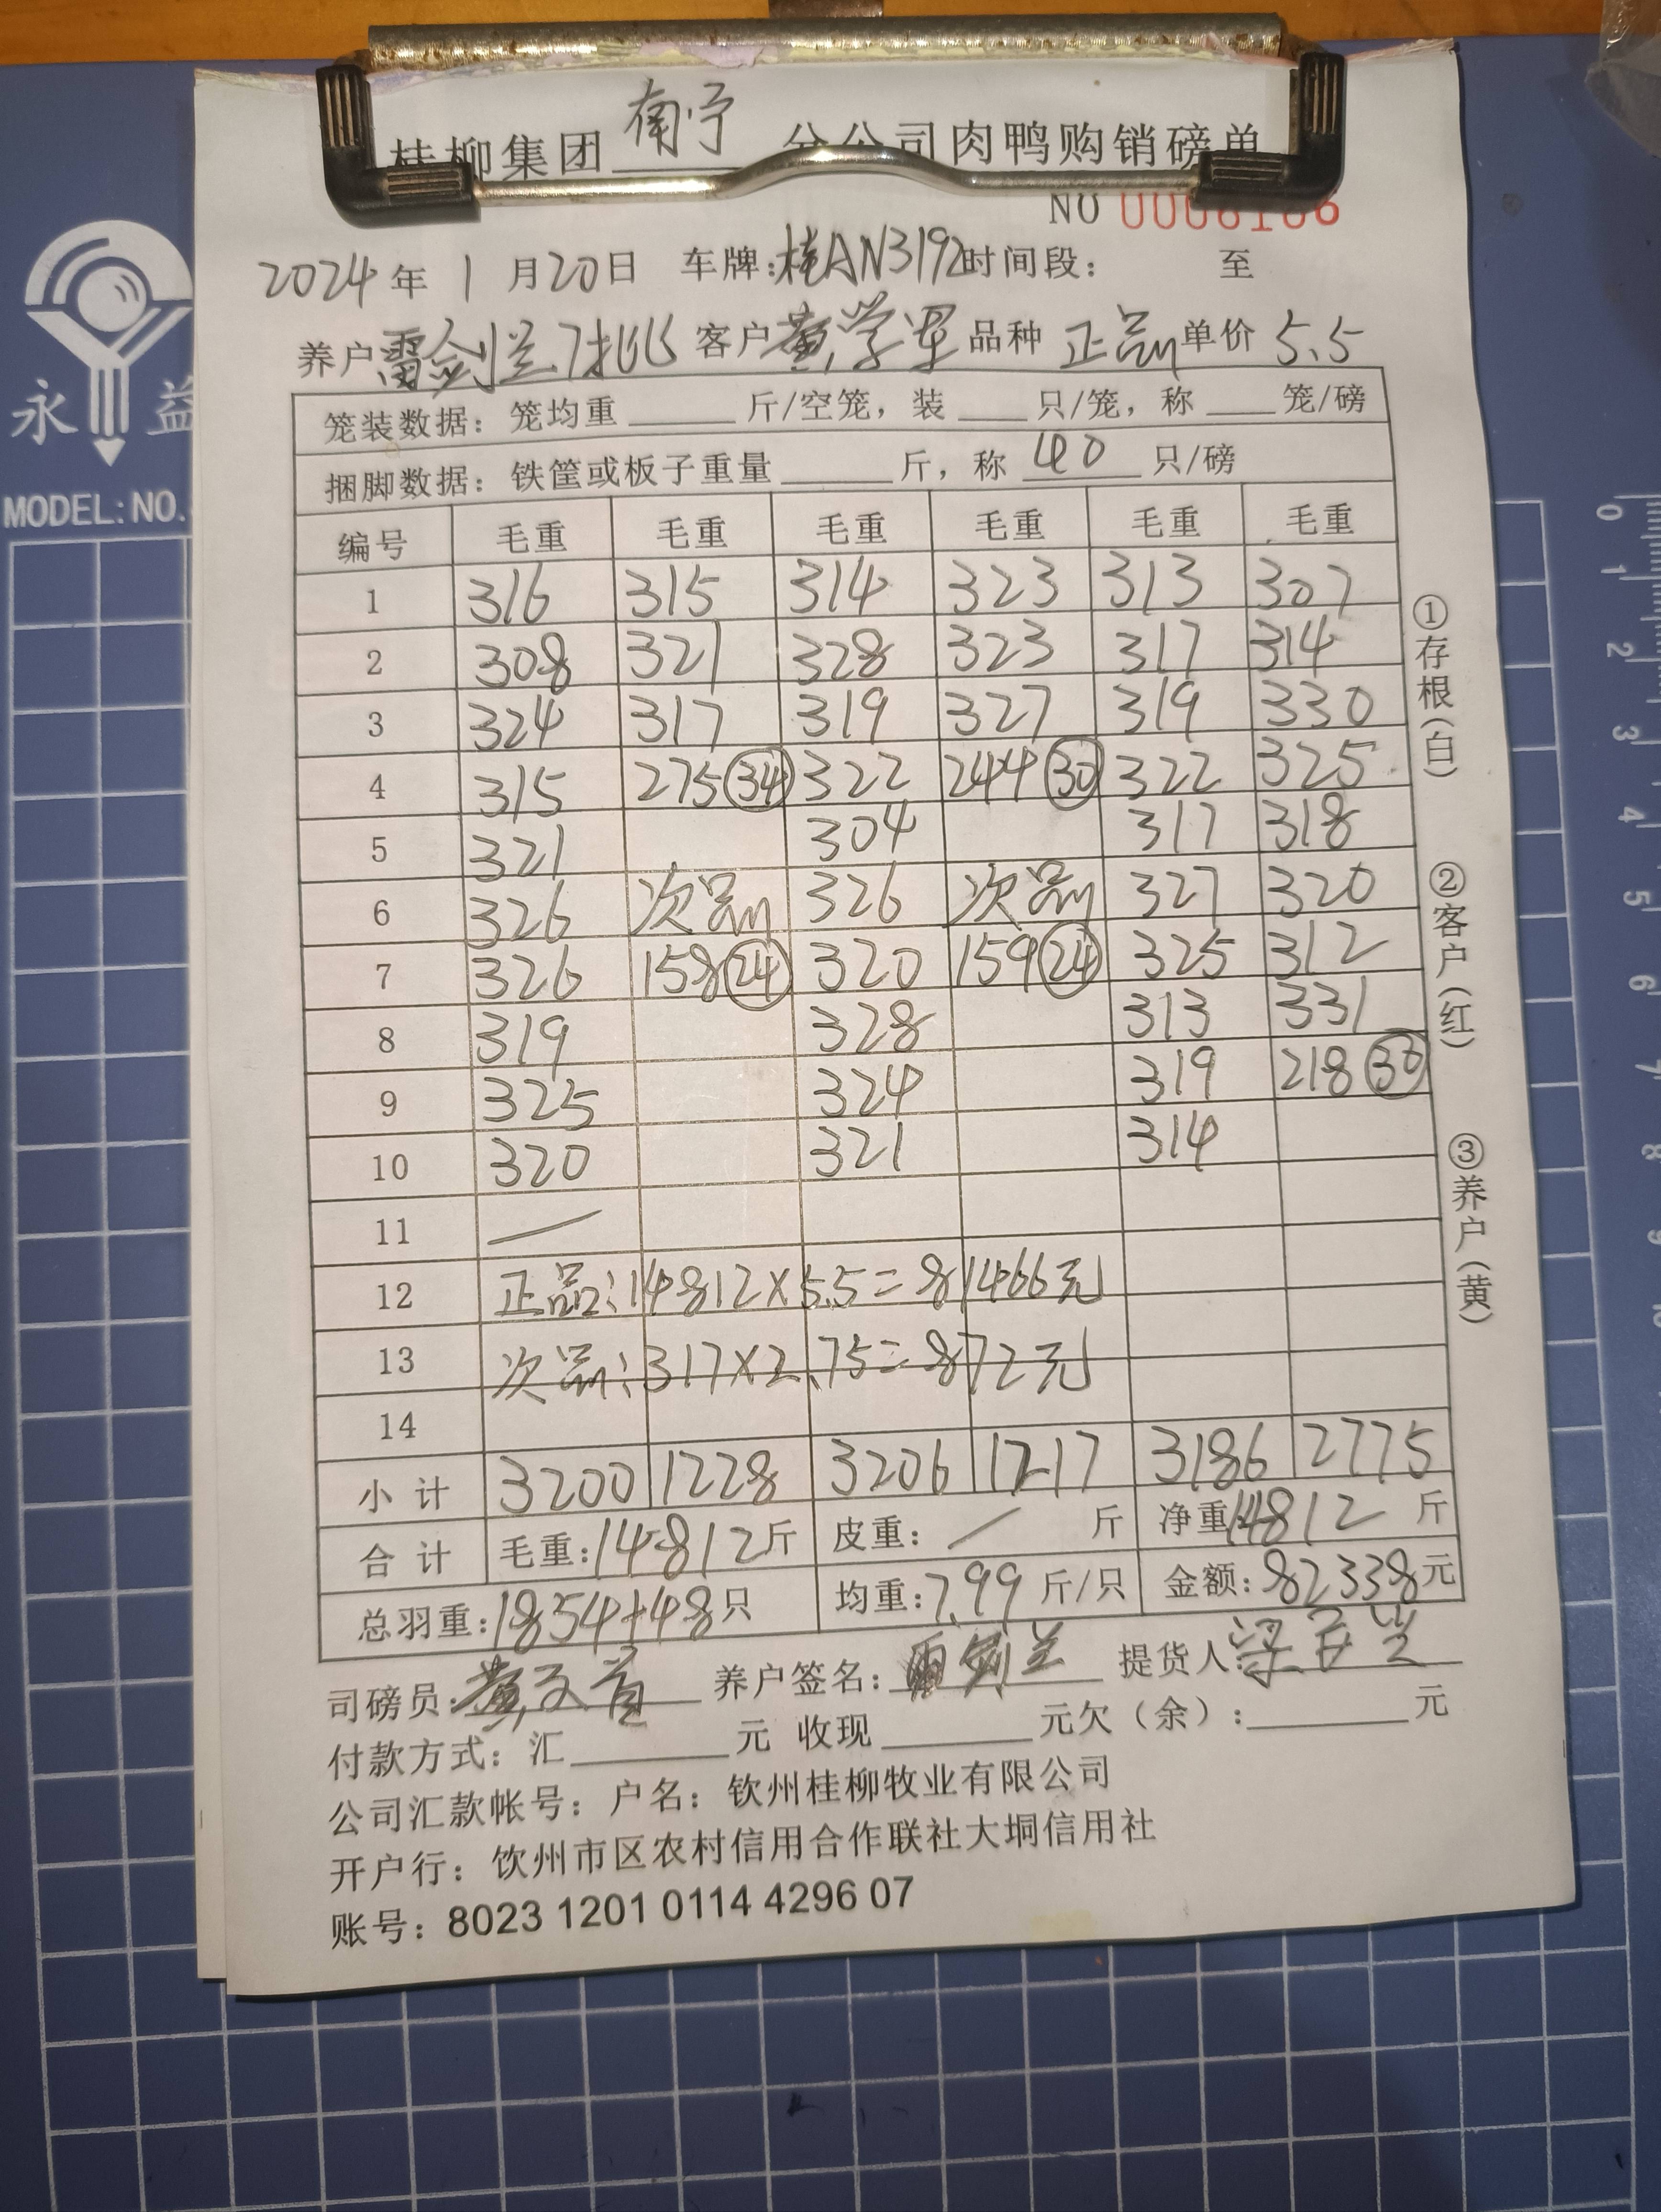 桂柳集团 南宁 分公司肉鸭购销磅单
NO
2024年 1 月20日 车牌:桂AN3192 时间段: 至
养户 雷剑兰 客户 黄学军 品种 正品 单价 5.5
笼装数据: 笼均重 斤/空笼, 装 只/笼, 称 笼/磅
捆脚数据: 铁筐或板子重量 斤, 称 40 只/磅
编号 毛重 毛重 毛重 毛重 毛重 毛重
1 316 315 314 323 313 307
2 308 321 328 323 317 314
3 324 317 319 327 319 330
4 315 275 34 322 244 30 322 325
5 321 304 317 318
6 326 次品 326 次品 327 320
7 326 158 24 320 159 24 325 312
8 319 328 313 331
9 325 324 319 218
10 320 321 314
11 —
12 正品:14812×5.5=81466元
13 次品:317×2.75=872元
14
小计 3200 1228 3206 1217 3186 2775
合计 毛重:14812斤 皮重: / 斤 净重:14812 斤
总羽重:1854+48只 均重:7.99 斤/只 金额:82338元
司磅员: 养户签名:雷剑兰 提货人:
付款方式: 汇 元 收现 元欠(余): 元
公司汇款帐号: 户名: 钦州桂柳牧业有限公司
开户行: 钦州市区农村信用合作联社大垌信用社
账号: 8023 1201 0114 4296 07
①存根(白)
②客户(红)
③养户(黄)
永益
MODEL:NO.
0
1
2
3
4
5
6
7
8
9